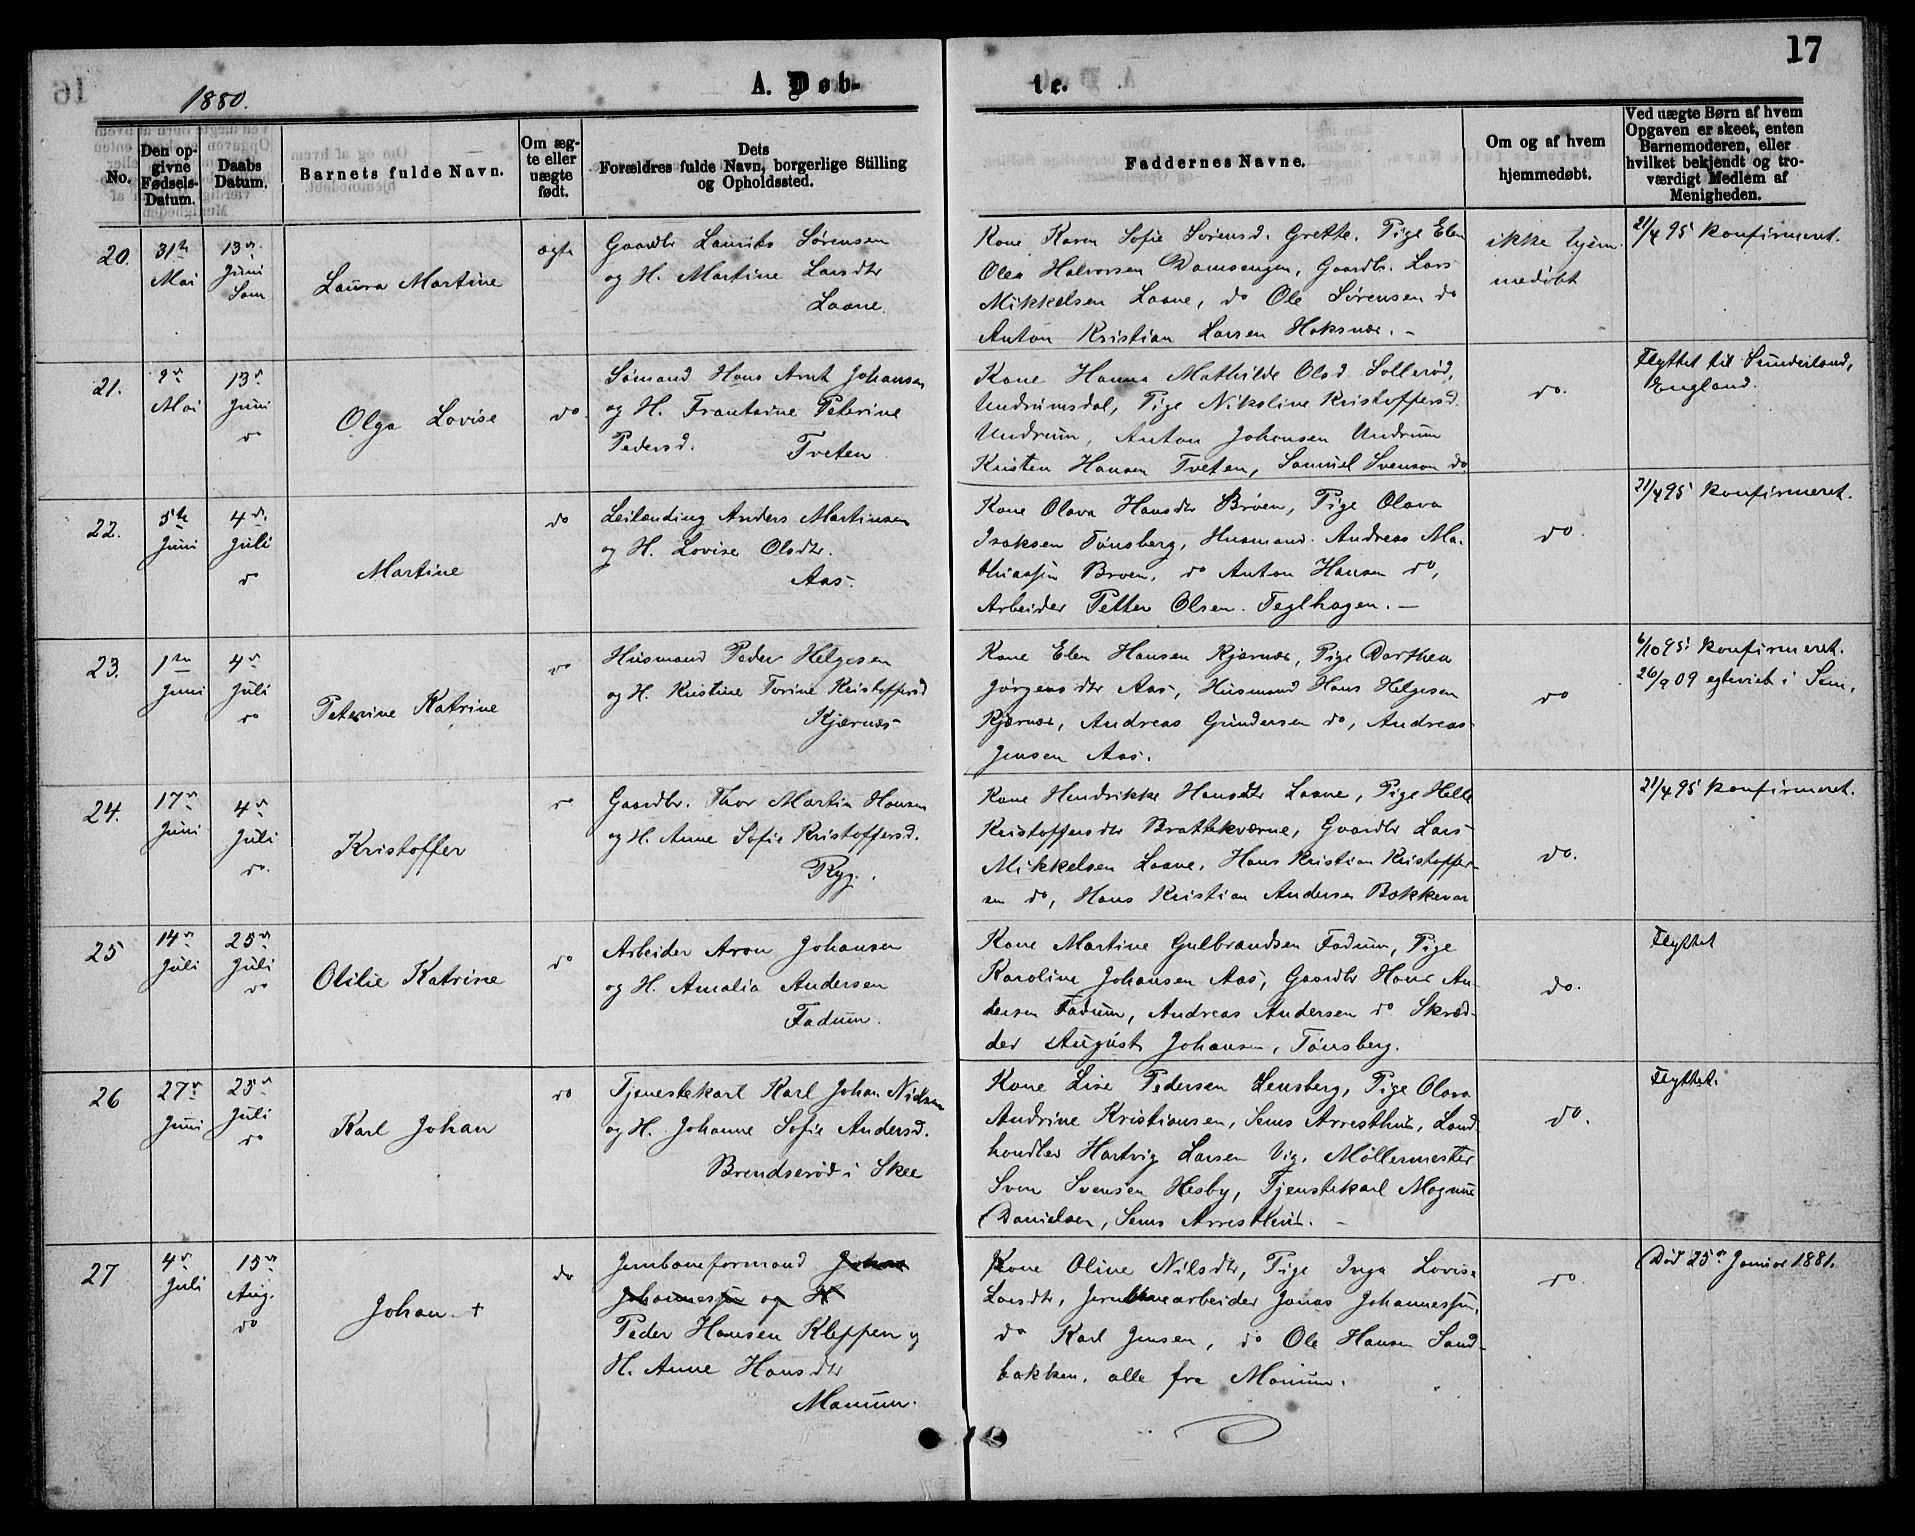 17
1880.
A. Døb-
te.
No.
Den op-
givne
Fødsels-
Datum.
Daabs
Datum.
Barnets fulde Navn.
Om æg-
te eller
uægte
født.
Dets
Forældres fulde Navn, borgerlige Stilling
og Opholdssted.
Faddernes Navne.
Om og af hvem
hjemmedøbt.
Ved uægte Børn af hvem
Opgaven er skeet, enten
Barnemoderen, eller
hvilket bekjendt og tro-
værdigt Medlem af
Menigheden.
20.
31te
Mai
13de
Juni
Sem
Laura Martine
ægte
Gaardbr Laurits Sørensen
og H. Martine Larsdtr
Laane.
Kone Karen Sofie Sørensd. Grette. Pige Elen
Olea Halvorsen Damsengen, Gaardbr. Lars
Mikkelsen Laane, do Ole Sørensen do
Anton Kristian Larsen Haksnæs. -
ikke hjem-
medøbt
21/4 95 konfirmeret.
21.
9de
Mai
13de
Juni
do
Olga Lovise
do
Sømand Hans Arnt Johansen
og H. Frantsine Peterine
Pedersd. Tveten.
Kone Hanna Mathilde Olsd Sollerød,
Undrumsdal, Pige Nikoline Kristoffersd.
Undrum, Anton Johansen Undrum
Kristen Hansen Tveten, Samuel Svenson do
do.
Flyttet til Sunderland,
England.
22.
5te
Juni
4de
Juli
do
Martine
do
Leilending Anders Martinsen
og H. Lovise Olsdtr.
Aas.
Kone Olava Hansdtr Broen, Pige Olava
Isaksen Tønsberg, Husmand Andreas Ma-
thiassen Broen, do Anton Hansen do,
Arbeider Petter Olsen Teglhagen. -
do.
21/4 95 konfirmeret.
23.
1ste
Juni
4de
Juli
do
Peterine Katrine
do
Husmand Peder Helgesen
og H. Kristine Torine Kristoffersd
Kjærnæs
Kone Elen Hansen Kjærnæs, Pige Dorthea
Jørgensdtr Aas, Husmand Hans Helgesen
Kjærnæs, Andreas Gundersen do, Andreas
Jensen Aas.
do
6/10 95 konfirmeret.
26/9 09 egteviet i Sem.
24.
17de
Juni
4de
Juli
do.
Kristoffer
do
Gaardbr. Thor Martin Hansen
og H. Anne Sofie Kristoffersd.
Ryg.
Kone Hendrikke Hansdtr Laane, Pige Helle
Kristoffersdtr Brattekværne, Gaardbr Lars
Mikkelsen Laane, Hans Kristian Kristoffer-
sen do, Hans Kristian Andersen Bakkevar
do.
21/4 95 konfirmeret.
25
14de
Juli
25de
Juli
do
Otilie Katrine
do
Arbeider Aron Johansen
og H. Amalia Andersen
Fadum.
Kone Martine Gulbrandsen Fadum, Pige
Karoline Johansen Aas, Gaardbr Hans An-
dersen Fadum, Andreas Andersen do Skræd-
der August Johansen, Tønsberg.
do.
Flyttet
26
27de
Juni
25de
Juli
do
Karl Johan
do
Tjenestekarl Karl Johan Nielsen
og H. Johanne Sofie Andersd.
Brendserød i Skee
Kone Lise Pedersen Lensberg, Pige Olava
Andrine Kristiansen, Sems Arresthus, Land-
handler Hartvig Larsen Vig, Møllermester
Sven Svensen Hesby, Tjenstekarl Magnus
Danielsen, Sems Arresthus. -
do.
Flyttet.
27
4de
Juli
15de
Aug.
do
Johan +
do
Jernbaneformand Johan
Johannessen og H
Peder Hansen Kleppen og
H. Anne Hansdtr
Manum.
Kone Oline Nilsdtr, Pige Inga Lovise
Larsdtr, Jernbanearbeider Jonas Johannessen,
do Karl Jensen, do Ole Hansen Sand-
bakken, alle fra Manum.
do.
Død 25de Januar 1881.